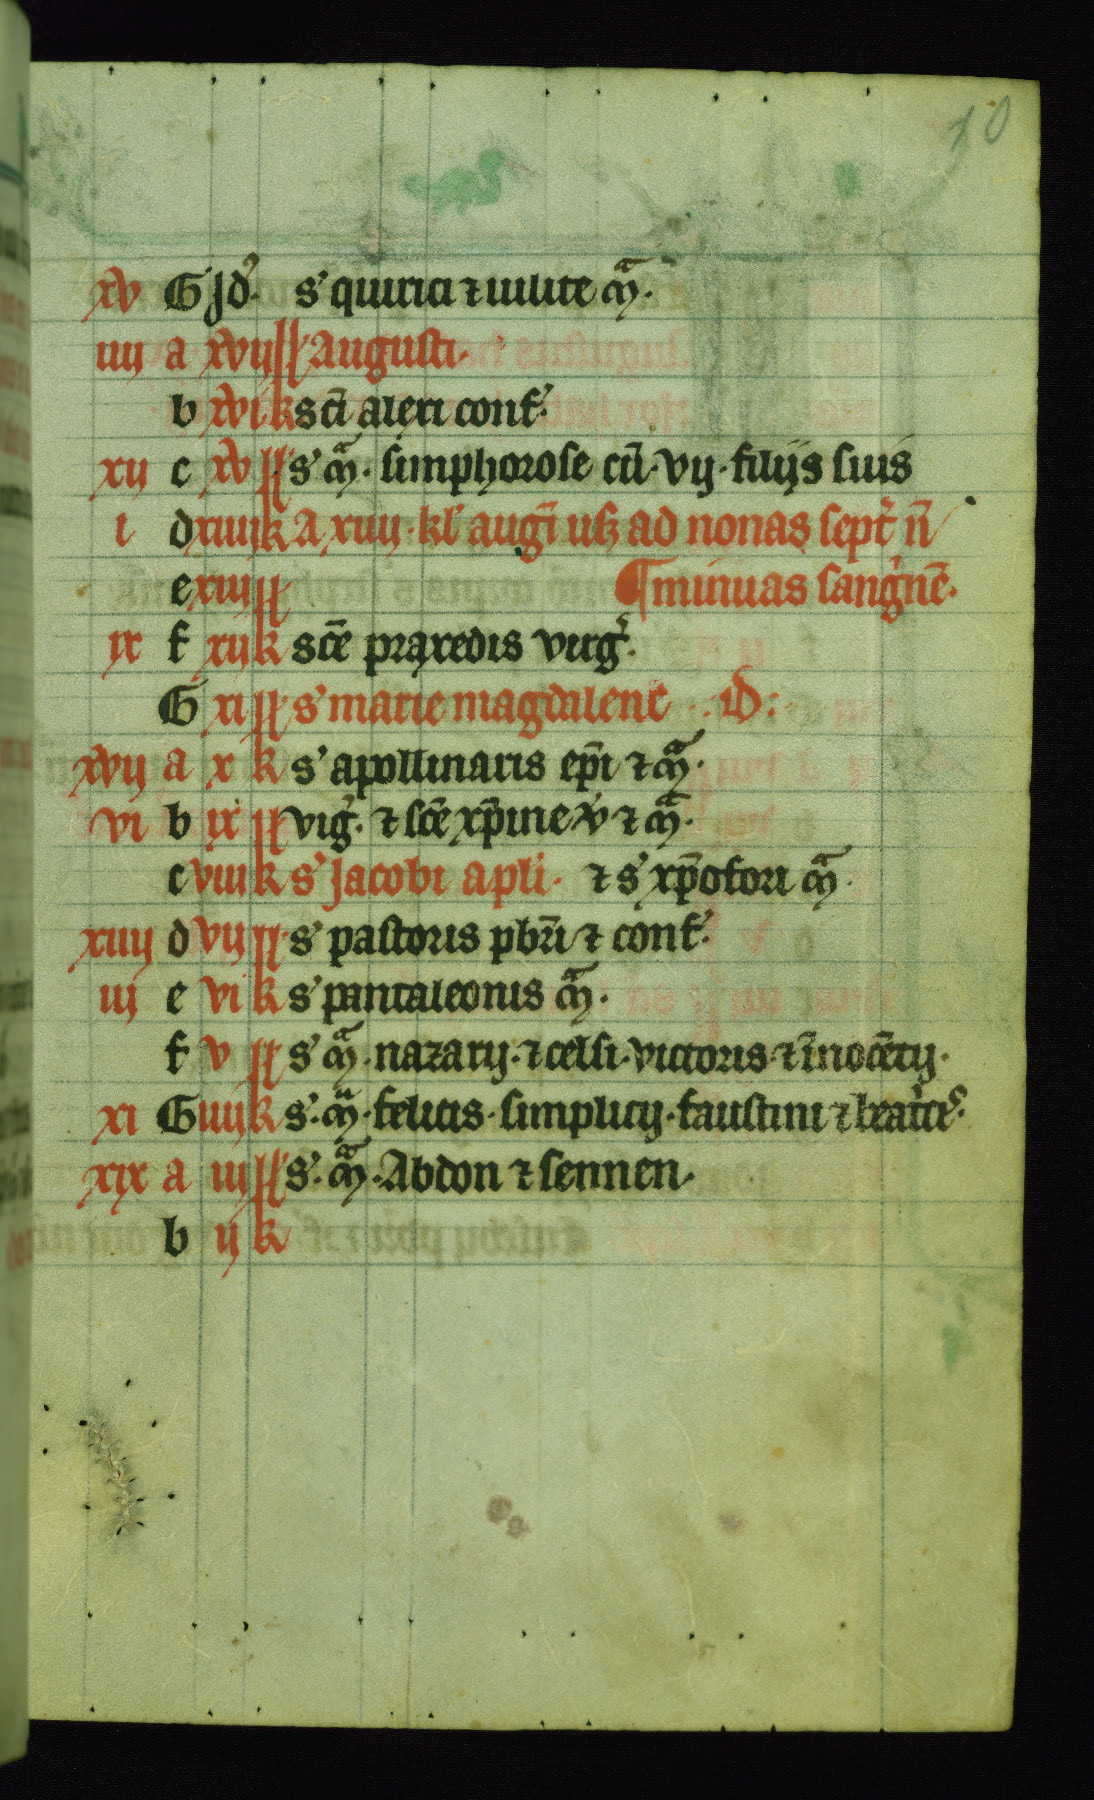 10
xv G Jd' s' quirici ⁊ iulite m̃.
iiij a xvij kl' Augusti.
b xvi k sc̄i alexi conf'.
xij c xv kl' s' m̃. simphorose cū. vij. filijs suis
i d xiiij k A xiiij. kl' augn̄ usq; ad nonas sept' n̄
e xiij kl' ¶ minuas sang'nē.
ix f xij k sc̄e praxedis virg'.
G xi kl' s' marie magdalene. .D:
xvij a x k s' apollinaris ep̄i ⁊ m̃.
vi b ix kl' vig'. ⁊ sc̄e xp̄ine v' ⁊ m̃.
c viij k s' Jacobi apli. ⁊ s' xp̄ofori m̃.
xiiij d vij kl' s' pastoris pbr̄i ⁊ conf'.
iij e vi k s' pantaleonis m̃.
f v kl' s' m̃. nazarij. ⁊ celsi. victoris. ⁊ īnocētij.
xi G iiij k s'. m̃. felicis. simplicij. faustini ⁊ beat'ic'.
xix a iij kl' s'. m̃. Abdon ⁊ sennen.
b ij k